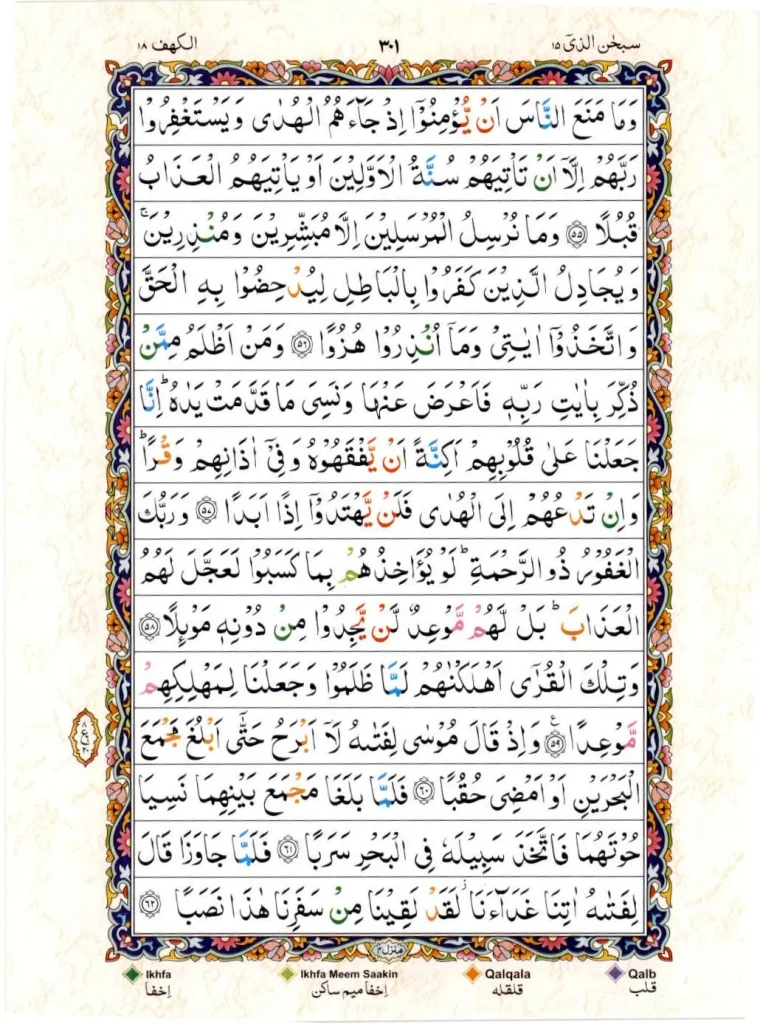 سبحٰن الذیٓ ۱۵ ۳۰۱ الکھف ۱۸
وَمَا مَنَعَ النَّاسَ اَنْ يُّؤْمِنُوْٓا اِذْ جَآءَهُمُ الْهُدٰى وَيَسْتَغْفِرُوْا
رَبَّهُمْ اِلَّآ اَنْ تَاْتِيَهُمْ سُنَّةُ الْاَوَّلِيْنَ اَوْ يَاْتِيَهُمُ الْعَذَابُ
قُبُلًا ۝۵۵ وَمَا نُرْسِلُ الْمُرْسَلِيْنَ اِلَّا مُبَشِّرِيْنَ وَمُنْذِرِيْنَ ۚ
وَيُجَادِلُ الَّذِيْنَ كَفَرُوْا بِالْبَاطِلِ لِيُدْحِضُوْا بِهِ الْحَقَّ
وَاتَّخَذُوْٓا اٰيٰتِىْ وَمَآ اُنْذِرُوْا هُزُوًا ۝۵۶ وَمَنْ اَظْلَمُ مِمَّنْ
ذُكِّرَ بِاٰيٰتِ رَبِّهٖ فَاَعْرَضَ عَنْهَا وَنَسِىَ مَا قَدَّمَتْ يَدٰهُ ؕ اِنَّا
جَعَلْنَا عَلٰى قُلُوْبِهِمْ اَكِنَّةً اَنْ يَّفْقَهُوْهُ وَفِىْٓ اٰذَانِهِمْ وَقْرًا ؕ
وَاِنْ تَدْعُهُمْ اِلَى الْهُدٰى فَلَنْ يَّهْتَدُوْٓا اِذًا اَبَدًا ۝۵۷ وَرَبُّكَ
الْغَفُوْرُ ذُو الرَّحْمَةِ ؕ لَوْ يُؤَاخِذُهُمْ بِمَا كَسَبُوْا لَعَجَّلَ لَهُمُ
الْعَذَابَ ؕ بَلْ لَّهُمْ مَّوْعِدٌ لَّنْ يَّجِدُوْا مِنْ دُوْنِهٖ مَوْئِلًا ۝۵۸
وَتِلْكَ الْقُرٰٓى اَهْلَكْنٰهُمْ لَمَّا ظَلَمُوْا وَجَعَلْنَا لِمَهْلِكِهِمْ
مَّوْعِدًا ۝۵۹ ع وَاِذْ قَالَ مُوْسٰى لِفَتٰىهُ لَآ اَبْرَحُ حَتّٰٓى اَبْلُغَ مَجْمَعَ
الْبَحْرَيْنِ اَوْ اَمْضِىَ حُقُبًا ۝۶۰ فَلَمَّا بَلَغَا مَجْمَعَ بَيْنِهِمَا نَسِيَا
حُوْتَهُمَا فَاتَّخَذَ سَبِيْلَهٗ فِى الْبَحْرِ سَرَبًا ۝۶۱ فَلَمَّا جَاوَزَا قَالَ
لِفَتٰىهُ اٰتِنَا غَدَآءَنَا ز لَقَدْ لَقِيْنَا مِنْ سَفَرِنَا هٰذَا نَصَبًا ۝۶۲
۸ ع ۶ ۲۰
منزل ۴
Ikhfa Ikhfa Meem Saakin Qalqala Qalb
اِخفا اِخفا میم ساکن قلقله قلب